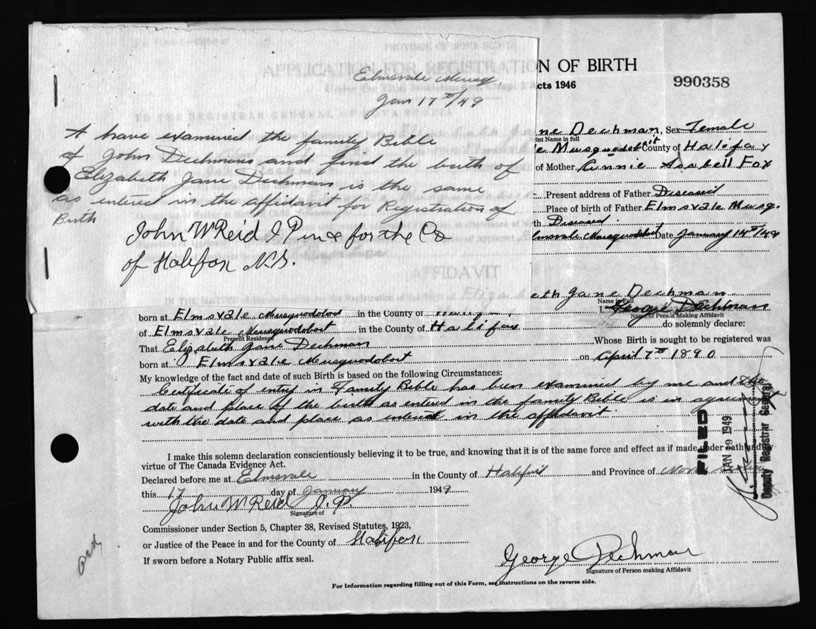 Elmsvale Musq
Jan 17th/49
A have examined the family Bible
of John Dechmans and find the birth of
Elizabeth Jane Dechman is the same
as entered in the affidavit for Registration of
Birth
John W Reid J Peace for the Co
of Halifax N.S.
N OF BIRTH
cts 1946
990358
ane Dechman, Sex Female
Print Name in full
e Musquodobit County of Halifax
of Mother Annie Asbell Fox
Present address of Father Diseased
Place of birth of Father Elmsvale Musq.
th Diseased.
Elmsvale Musquodobit Date January 17th/49
APPLICATION FOR REGISTRATION
AFFIDAVIT
eth Jane Dechman
Name in Full
I, George Dechman
Name of Person Making Affidavit
born at Elmsvale Musquodobot in the County of
of Elmsvale Musquodobort in the County of Halifax do solemnly declare:
Present Residence
That Elizabeth Jane Dechman Whose Birth is sought to be registered was
born at Elmsvale Musquodobort on April 7th 1890
My knowledge of the fact and date of such Birth is based on the following Circumstances:
Certificate of entry in Family Bible has been examined by me and the
date and place of the birth as entered in the family Bible is in agreement
with the date and place as entered in the affidavit.
I make this solemn declaration conscientiously believing it to be true, and knowing that it is of the same force and effect as if made under oath and by
virtue of The Canada Evidence Act.
Declared before me at Elmsvale in the County of Halifax and Province of Nova
this 17 day of January 1949
John W Reid J.P.
Signature of
Commissioner under Section 5, Chapter 38, Revised Statutes, 1923,
or Justice of the Peace in and for the County of Halifax
If sworn before a Notary Public affix seal.
George Dechman
Signature of Person making Affidavit
For Information regarding filling out of this Form, see instructions on the reverse side.
FILED
JAN 19 1949
Deputy Registrar General